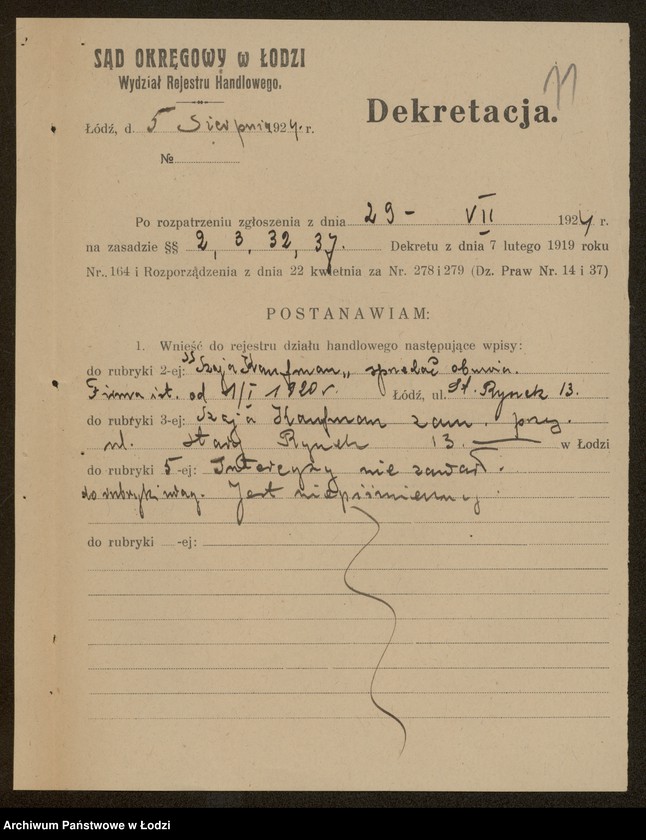 SĄD OKRĘGOWY w ŁODZI
Wydział Rejestru Handlowego.
11
Dekretacja.
Łódź, d. 5 Sierpnia 1924. r.
№
Po rozpatrzeniu zgłoszenia z dnia 29 - VII 1924 r.
na zasadzie §§ 2, 3, 32, 37. Dekretu z dnia 7 lutego 1919 roku
Nr., 164 i Rozporządzenia z dnia 22 kwietnia za Nr. 278 i 279 (Dz. Praw Nr. 14 i 37)
POSTANAWIAM:
1. Wnieść do rejestru działu handlowego następujące wpisy:
do rubryki 2-ej: "Szaja Kaufman„ sprzedaż obuwia.
Firma ist. od 1/I 1920 r. Łódź, ul. St. Rynek 13.
do rubryki 3-ej: Szaja Kaufman zam. przy
ul. Stary Rynek 13. w Łodzi
do rubryki 5-ej: Intercyzy nie zawarł.
do rubryki uwag. Jest niepiśmienny
do rubryki -ej:
Archiwum Państwowe w Łodzi